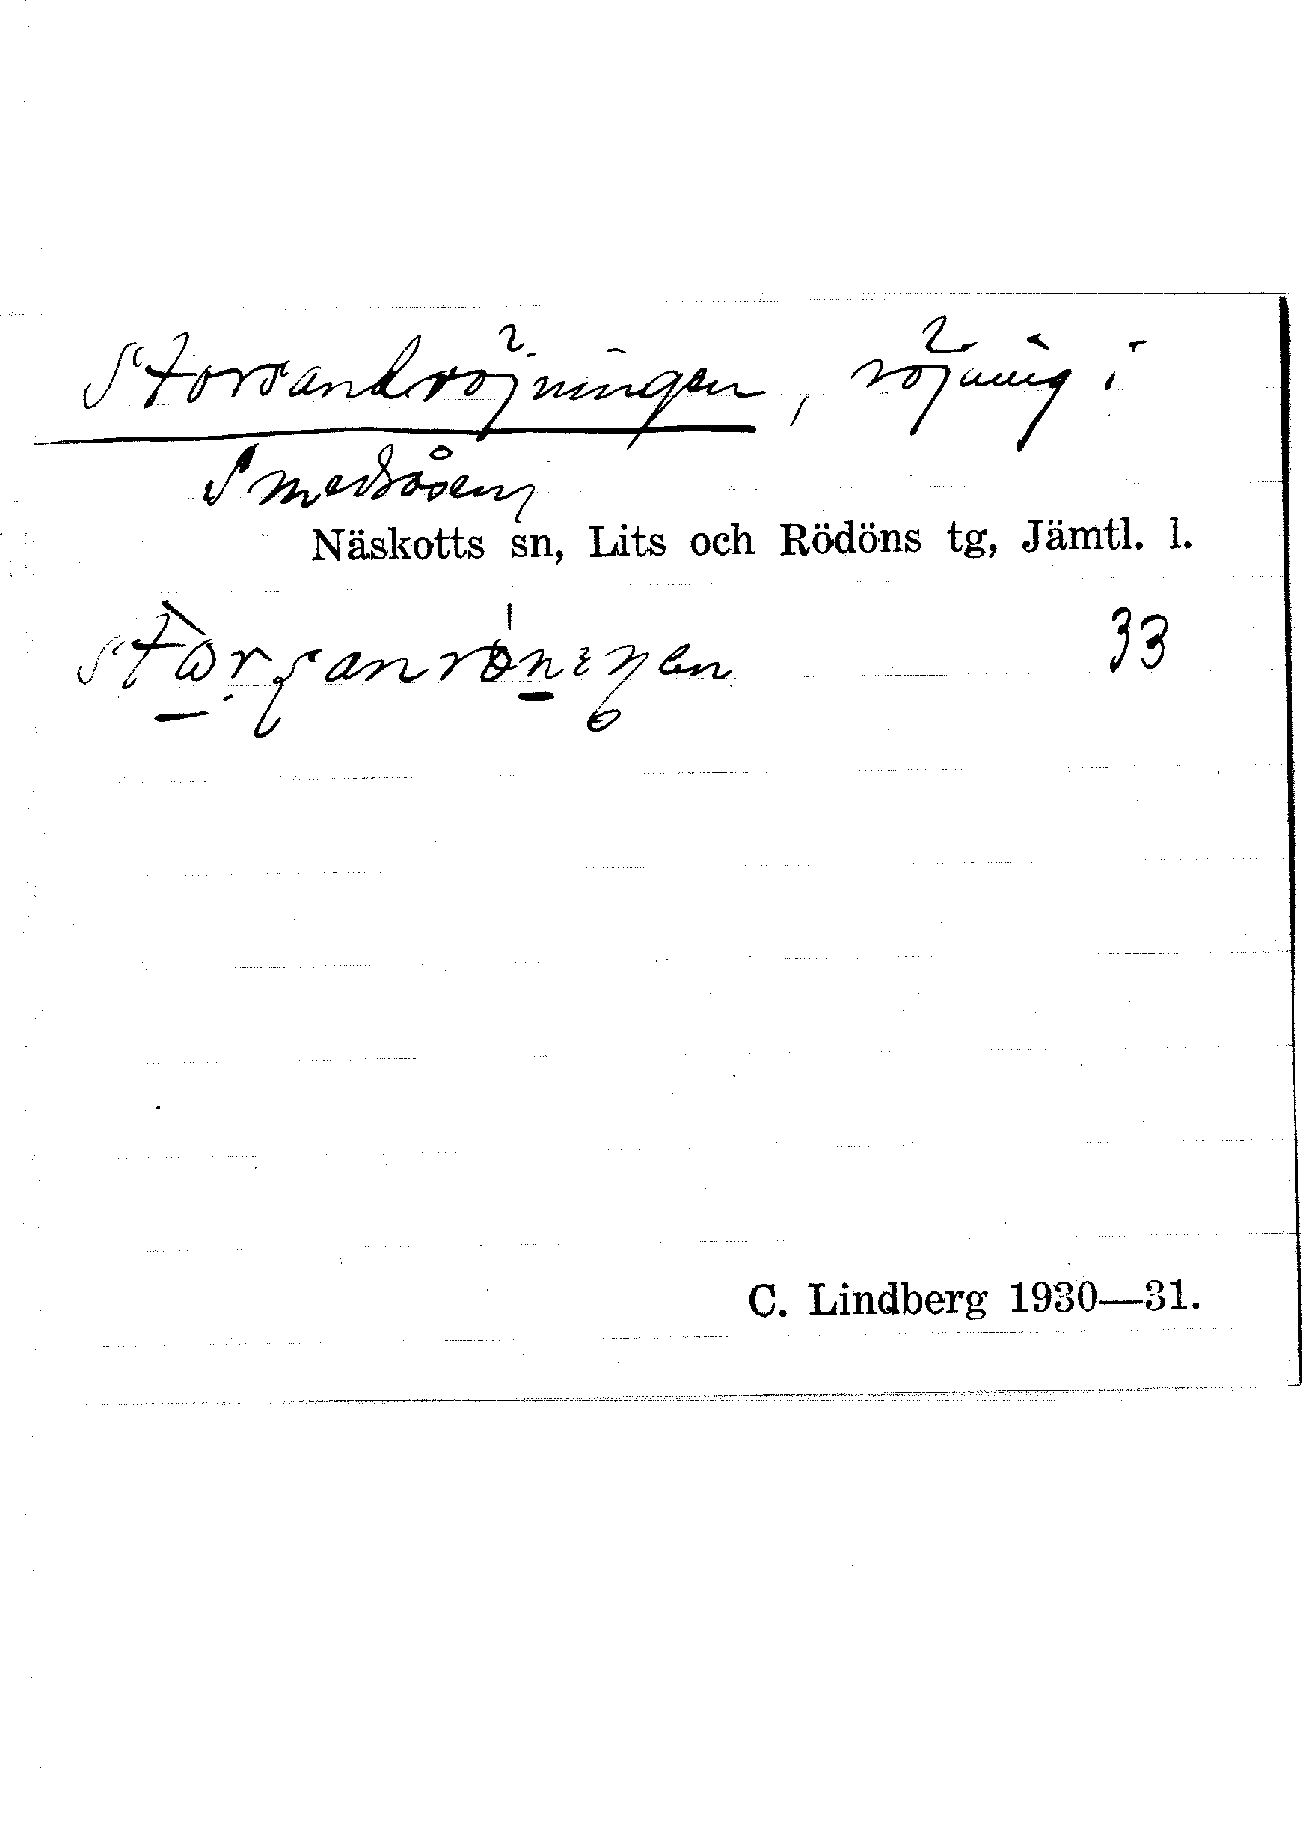 Storsandröjningen, röjning i
Smedsåsen,
Näskotts sn, Lits och Rödöns tg, Jämtl. l.
33
C. Lindberg 1930—31.